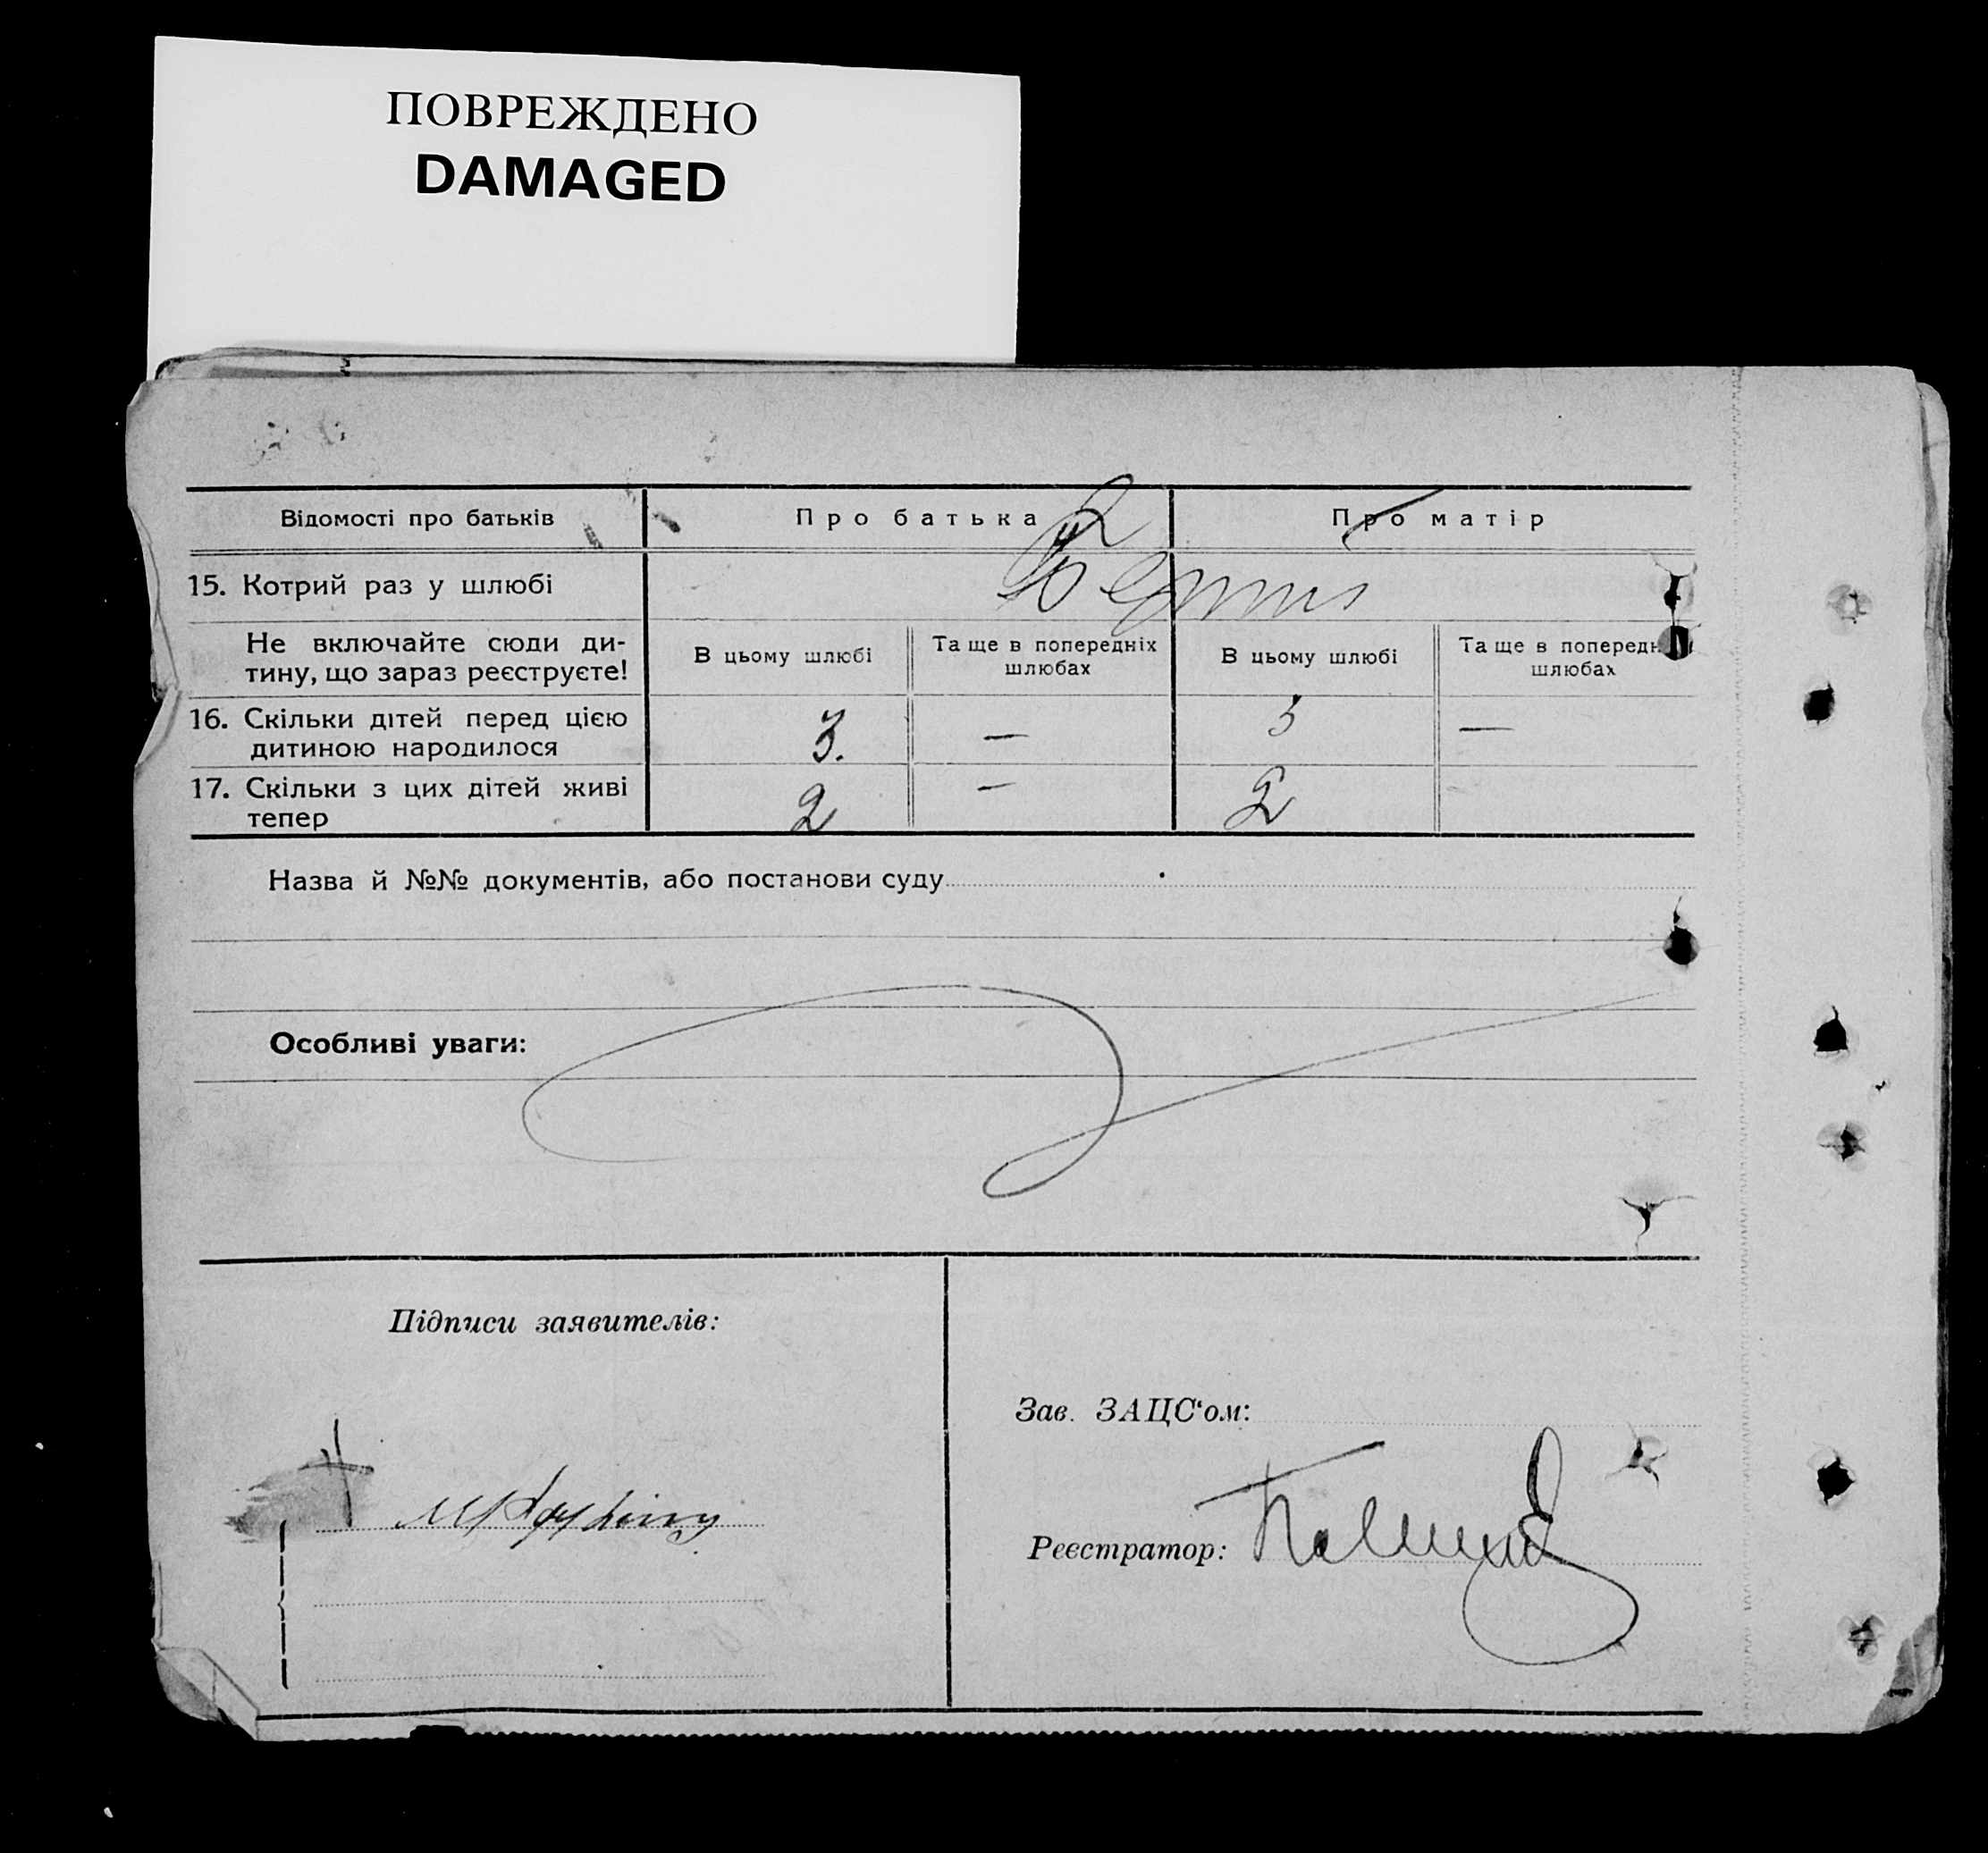 ПОВРЕЖДЕНО
DAMAGED
Відомості про батьків Про батька Про матір
15. Котрий раз у шлюбі
Не включайте сюди ди-
тину, що зараз реєструєте!
В цьому шлюбі Та ще в попередніх
шлюбах
В цьому шлюбі Та ще в
шлюбах
16. Скільки дітей перед цією
дитиною народилося 3. — 3 —
17. Скільки з цих дітей живі
тепер 2 — 2
Назва й №№ документів, або постанови суду
Особливі уваги:
Підписи заявителів:
Зав. ЗАЦС‘ом:
Реєстратор: